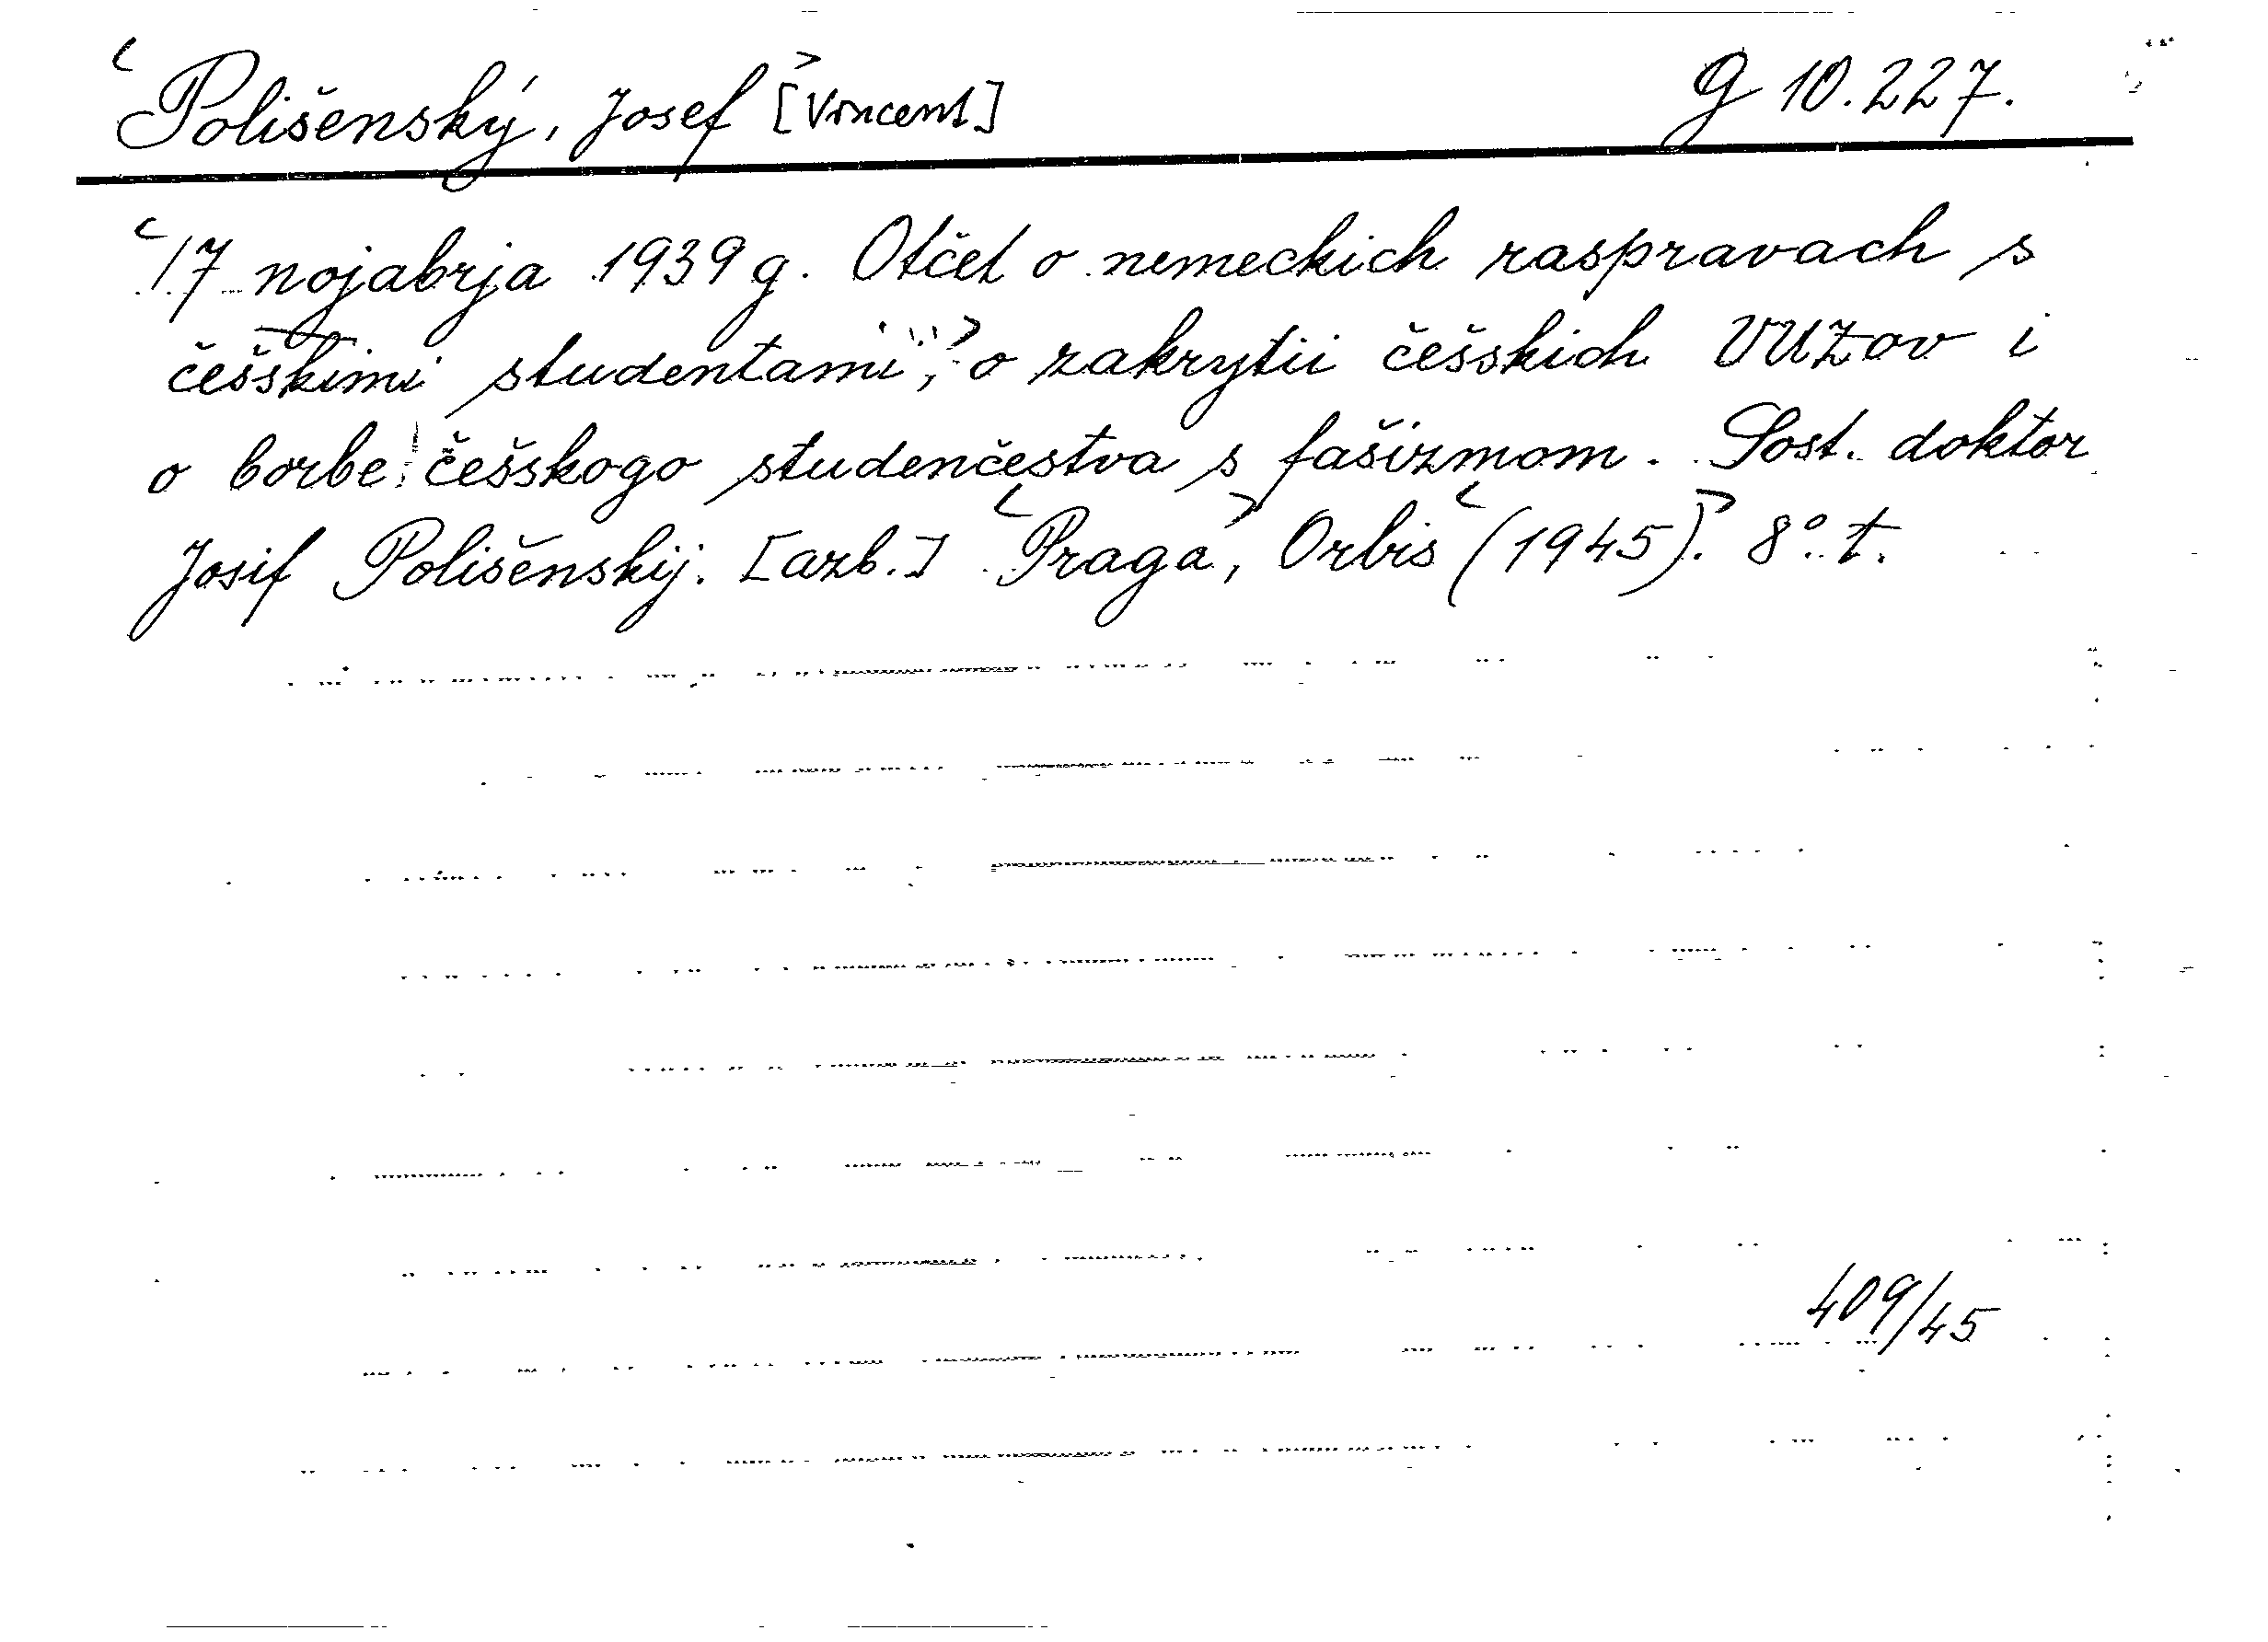 Polišenský, Josef [Vincent] G 10.227.
17 nojabrja 1939 g. Otčet o nemeckich raspravach s
češskimi studentami, o zakrytii češskich VUZov i
o borbe češskogo studenčestva s fašizmom. Sost. doktor
Josif Polišenskij. [azb.] Praga, Orbis (1945). 8°. t.
409/45